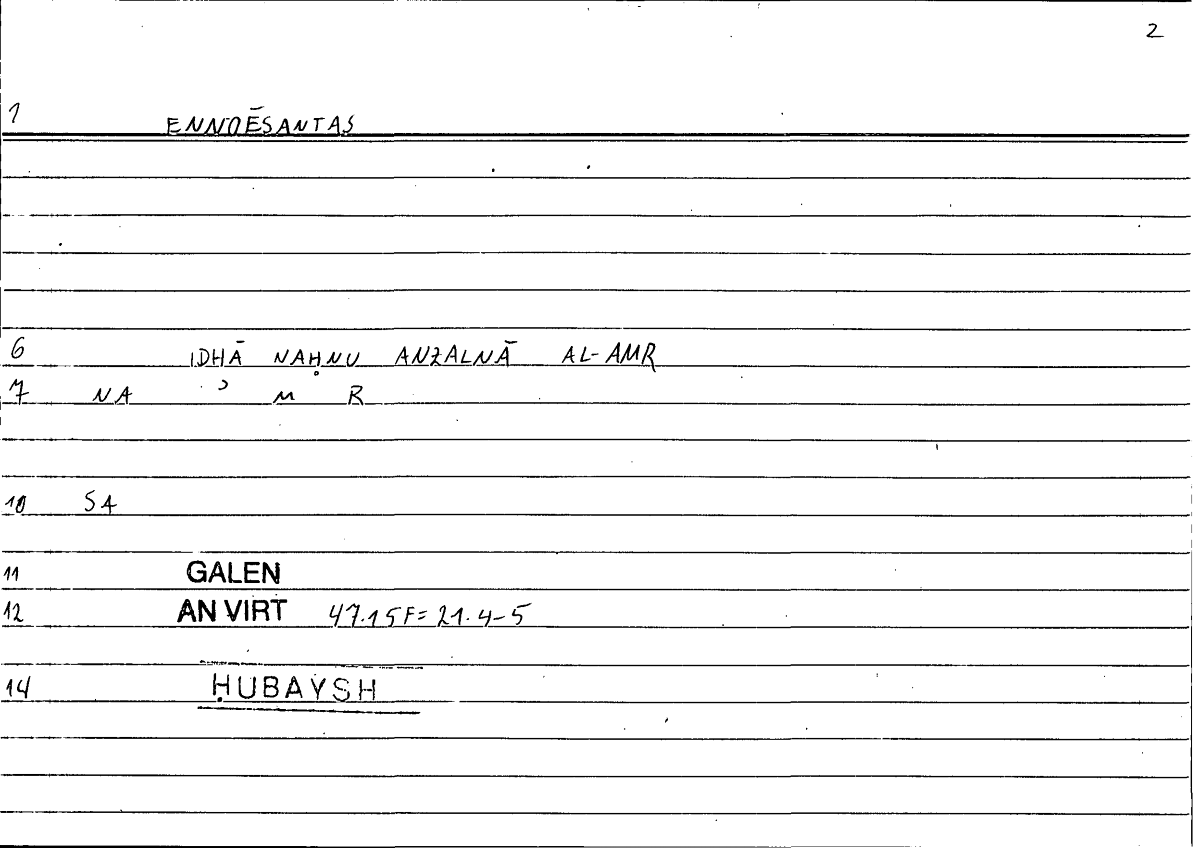 2
1 ENNOĒSANTAS
6 IDHĀ NAḤNU ANZALNĀ AL-AMR
7 NA ʾ M R
10 SA
11 GALEN
12 AN VIRT 47.15F=21.4-5
14 ḤUBAYSH